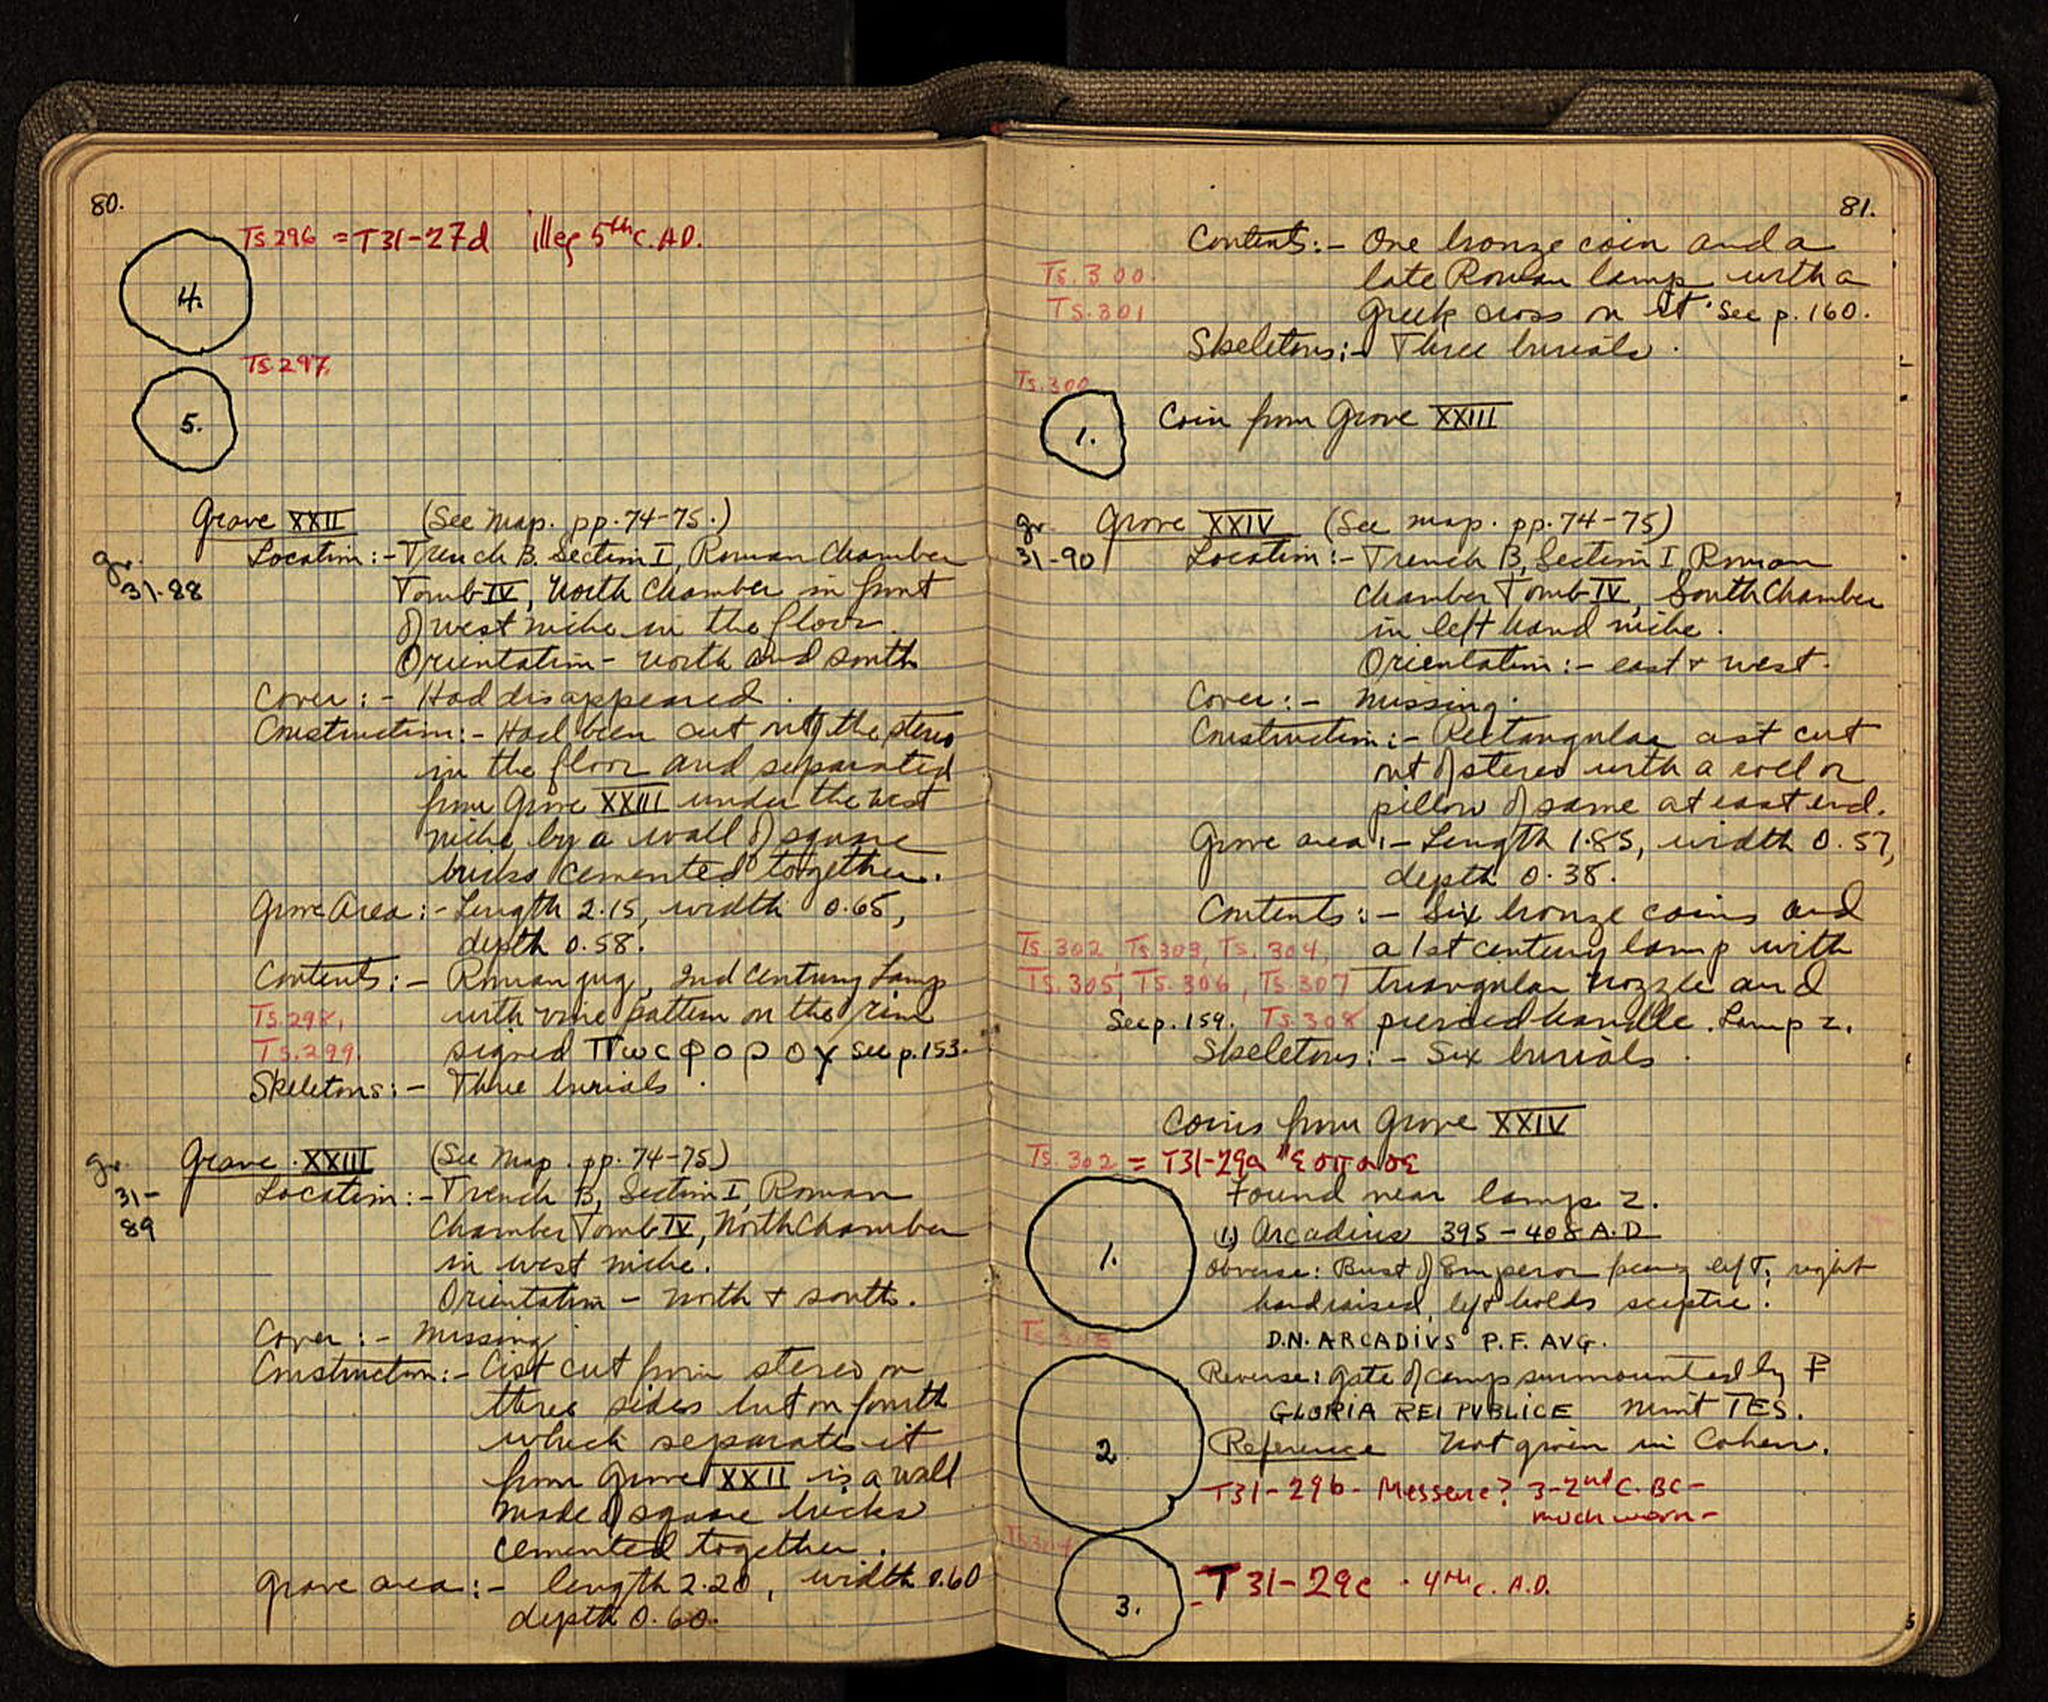 80.
Ts.296 = T31-27d illeg 5th c. A.D.
4.
Ts.297
5.
Grave XXII (See map. pp. 74-75.)
gr. 31-88
Location:- Trench B. Section I, Roman Chamber
Tomb IV, North Chamber in front
of west niche in the floor.
Orientation - north and south
Cover:- Had disappeared.
Construction:- Had been cut out of the stereo
in the floor and separated
from Grave XXIII under the west
niche by a wall of square
bricks cemented together.
Grave Area:- Length 2.15, width 0.65,
depth 0.58.
Contents:- Roman jug, 2nd Century Lamp
Ts.298, with vine pattern on the rim
Ts.299. signed Πωcφορου See p. 153.
Skeletons:- Three burials.
gr. 31-89
Grave XXIII (See Map. pp. 74-75)
Location:- Trench B, Section I, Roman
Chamber Tomb IV, North Chamber
in west niche.
Orientation - north + south.
Cover:- Missing
Construction:- Cist cut from stereo on
three sides but on fourth
which separates it
from Grave XXII is a wall
made of square bricks
cemented together.
Grave area:- length 2.20, width 0.60
depth 0.60.
81.
Contents:- One bronze coin and a
Ts.300. late Roman lamp with a
Ts.301 Greek cross on it. See p. 160.
Skeletons:- Three burials.
Ts.300
1. Coin from Grave XXIII
gr. 31-90
Grave XXIV (See map. pp. 74-75)
Location:- Trench B, Section I, Roman
Chamber Tomb IV, South Chamber
in left hand niche.
Orientation:- east + west.
Cover:- Missing.
Construction:- Rectangular cist cut
out of stereo with a roll or
pillow of same at east end.
Grave area:- Length 1.85, width 0.57,
depth 0.38.
Contents:- Six bronze coins and
Ts.302, Ts.303, Ts.304, a 1st century lamp with
Ts.305, Ts.306, Ts.307 triangular nozzle and
See p. 159. Ts.308 pierced handle. Lamp 2.
Skeletons:- Six burials.
Coins from Grave XXIV
Ts.302 = T31-29a
Found near lamp 2.
1.
(1) Arcadius 395-408 A.D
Obverse: Bust of Emperor facing left; right
hand raised, left holds sceptre.
Ts.303
D.N. ARCADIVS P.F. AVG.
Reverse: Gate of camp surmounted by
GLORIA REI PVBLICE mint TES.
2.
Reference Not given in Cohen.
T31-29b- Messene? 3-2nd C. BC-
much worn-
Ts.304
3.
T31-29c . 4th c. A.D.